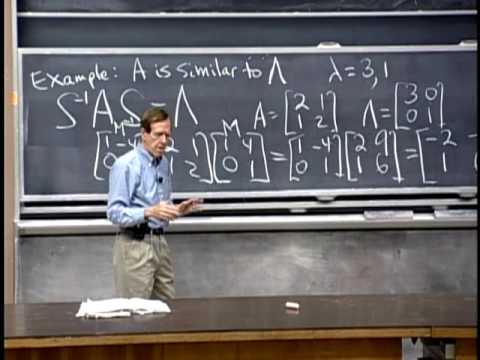 Example: A is similar to Λ λ = 3, 1
S⁻¹ A S = Λ A = [2 1; 1 2] Λ = [3 0; 0 1]
M
[1 -4; 0 1] [2 1; 1 2] [1 4; 0 1] = [1 -4; 0 1] [2 9; 1 6] = [-2 -; 1 6